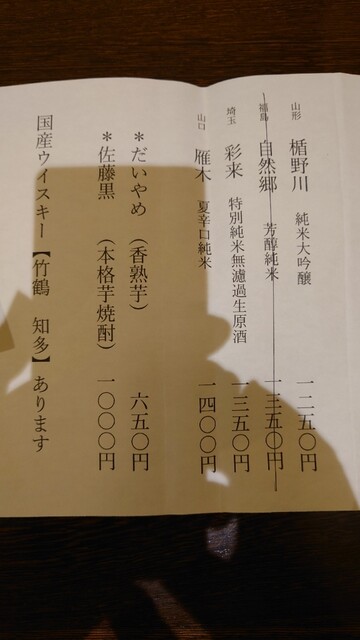 山形 楯野川 純米大吟醸 一二五〇円
福島 自然郷 芳醇純米 一三五〇円
埼玉 彩来 特別純米無濾過生原酒 一三五〇円
山口 雁木 夏辛口純米 一四〇〇円
*だいやめ (香熟芋) 六五〇円
*佐藤黒 (本格芋焼酎) 一〇〇〇円
国産ウイスキー【竹鶴 知多】あります